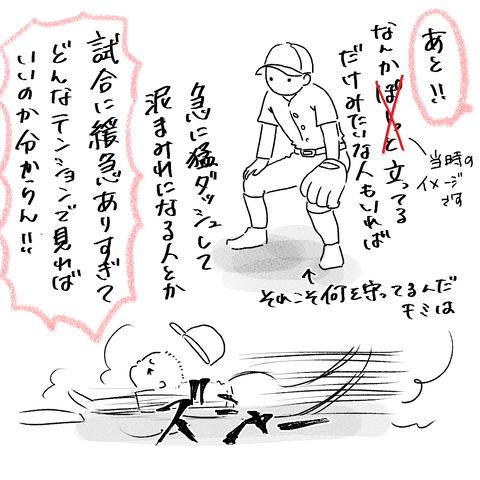 あと!!
なんかぼーっと立ってる
だけみたいな人もいれば
当時の
イメージ
です
それこそ何を守ってるんだ
キミは
急に猛ダッシュして
泥まみれになる人とか
試合に緩急ありすぎて
どんなテンションで見れば
いいのか分からん!!
ズシャー